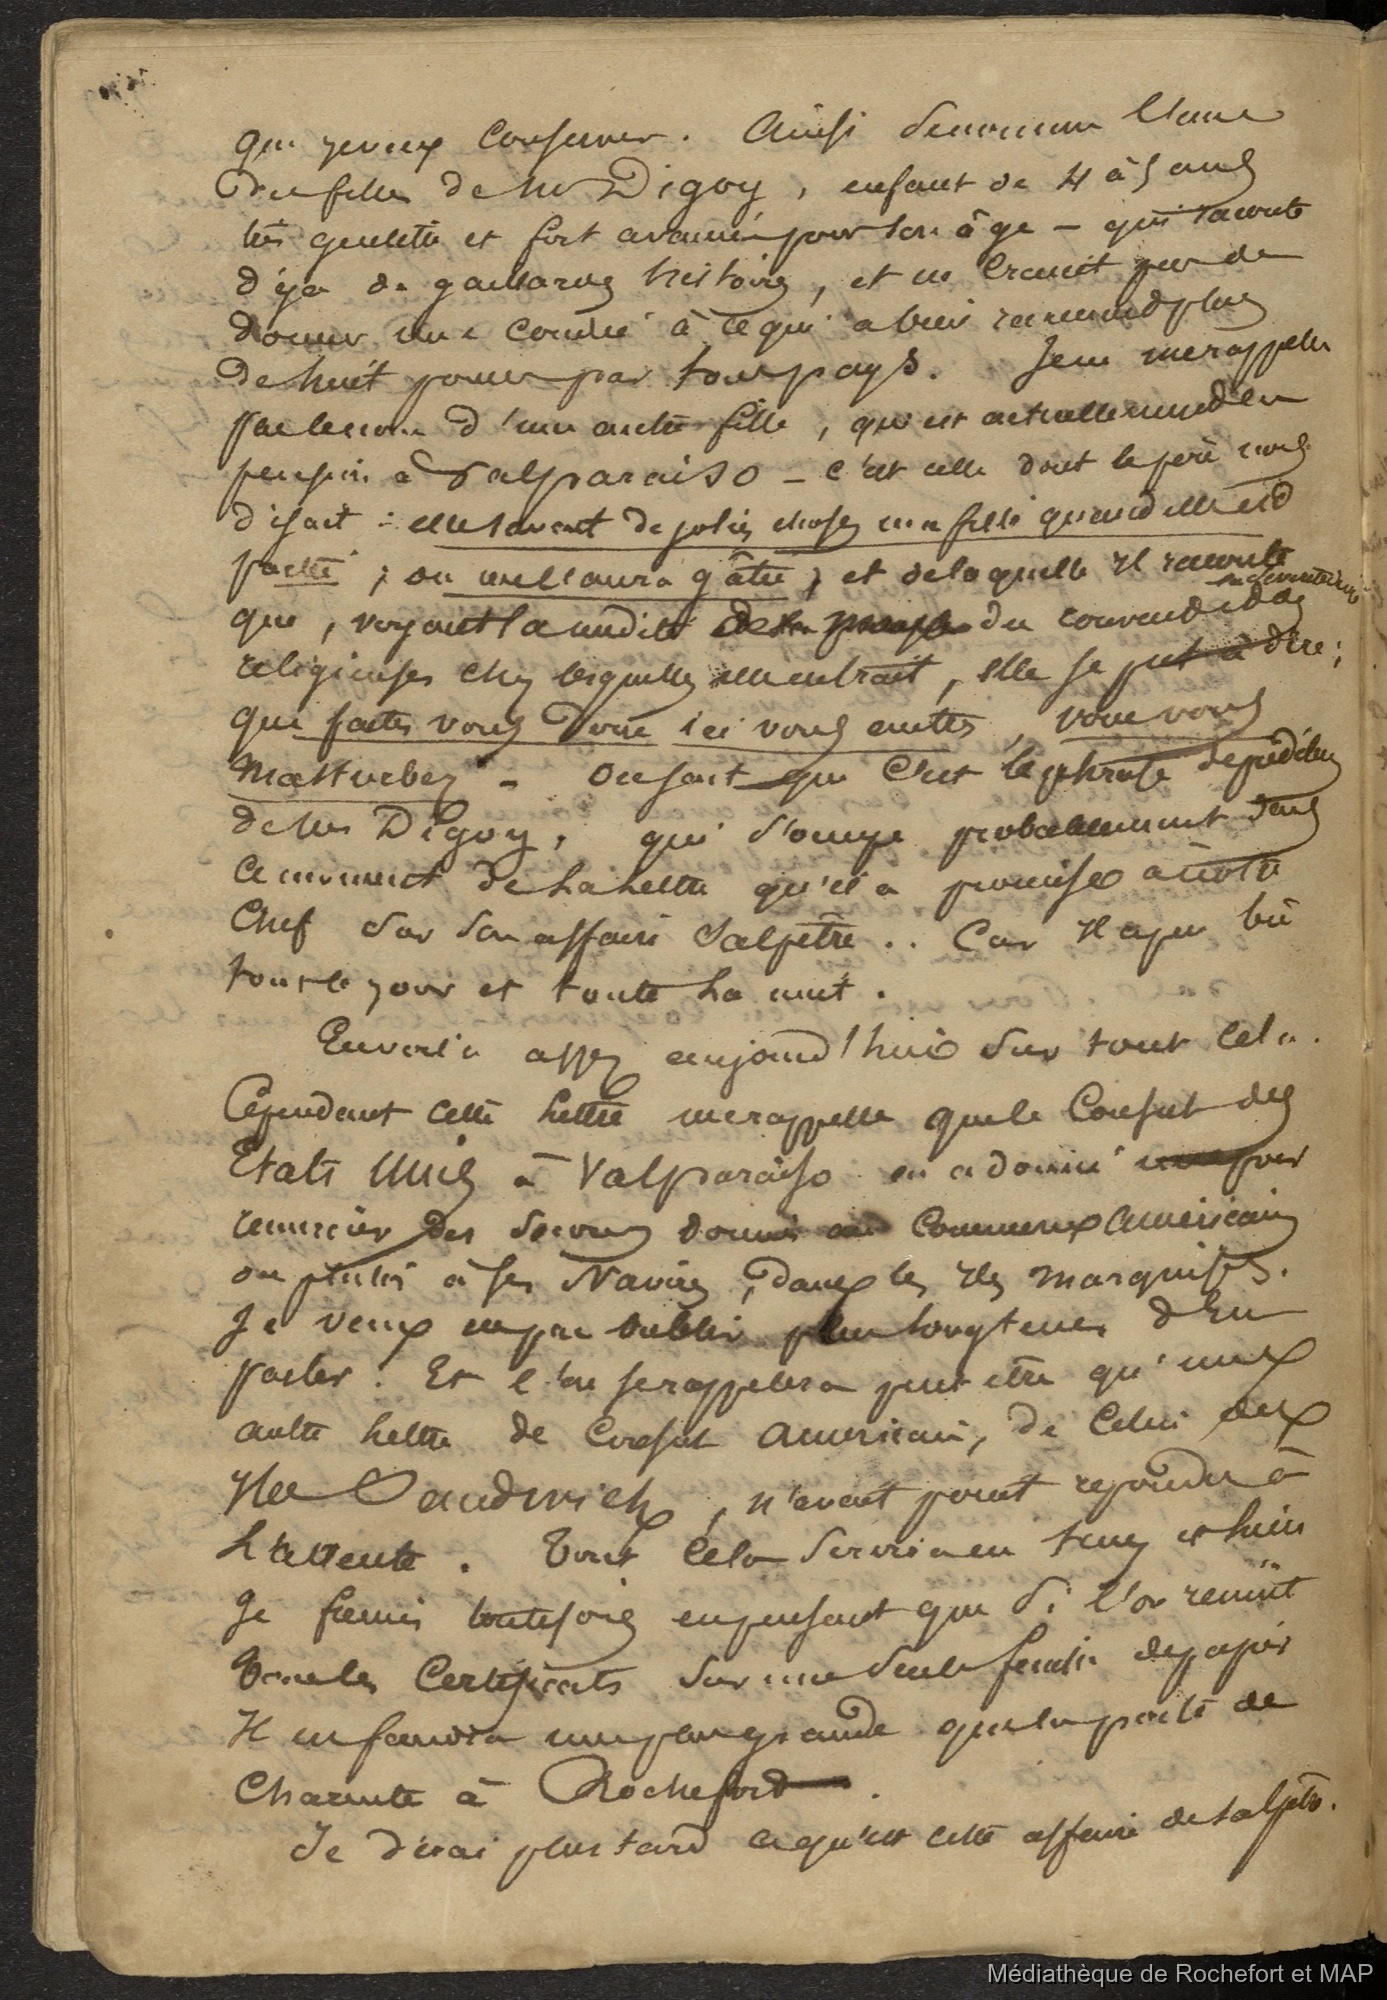 que je veux conserver. Ainsi se nomme l'une
des filles de Mr Digoy, enfant de 4 à 5 ans
très gentille et fort avancée pour son âge – qui raconte
déja de gaillardes histoires, et ne craint pas de
donner une
de huit par tous pays. Je ne me rappelle
pas le nom d'une autre fille, qui est actuellement en
pension à Valparaiso – c'est celle dont le père nous
disait : elle savait de jolies choses ma fille quand elle est
partie ; on me l'aura gâtée ; et de laquelle il raconte
que, voyant la nudité du couvent des
religieuses chez lesquelles elle entrait, elle se prit à dire :
que faites vous donc ici vous autres, vous vous
masturbez – On sait que c'est la phrase de prédilection
de Mr Digoy, qui s'occupe probablement dans
ce moment de la lettre qu'il a promise à notre
Chef sur son affaire Salpêtre .. Car il a peu bû
tout le jour et toute la nuit.
En voilà assez aujourd'hui sur tout cela.
Cependant cette lettre me rappelle que le Consul des
Etats Unis à Valparaiso en a donné une pour
remercier des secours donnés au Commerce Américain
ou plutôt à ses Navires, dans les Iles Marquises.
Je veux ne pas oublier plus longtems d'en
parler. Et l'on se rappelera peut être qu'une
autre lettre de Consul américain, de celui aux
Iles Sandwich, n'avait point repondu à
l'attente. Tout cela servira en tems et lieu
Je fremis toutefois en pensant que si l'on reunit
tous les Certificats sur une seule feuille de papier
Il en faudra une plus grande que la porte de
Charente à Rochefort.
Je dirai plus tard ce qu'est cette affaire de Salpêtre.
Médiathèque de Rochefort et MAP